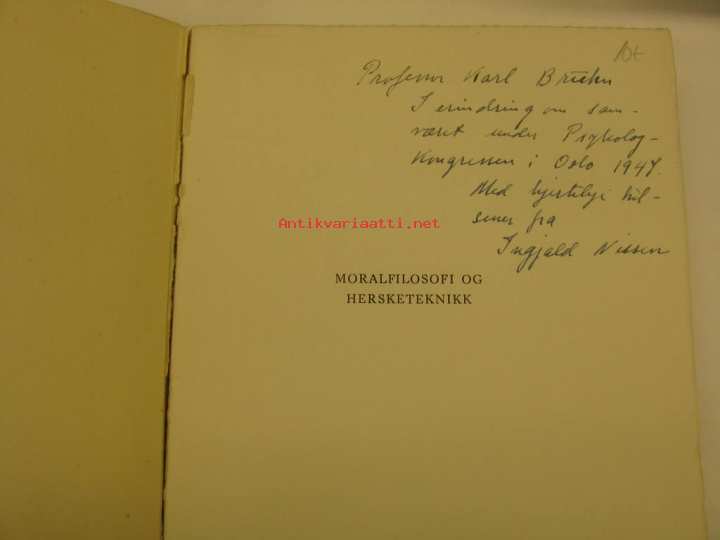 10€
Professor Karl Bruhn
I erindring om sam-
været under Psykolog-
Kongressen i Oslo 1947.
Med hjertelige hil-
sener fra
Ingjald Nissen
Antikvariaatti.net
MORALFILOSOFI OG
HERSKETEKNIKK